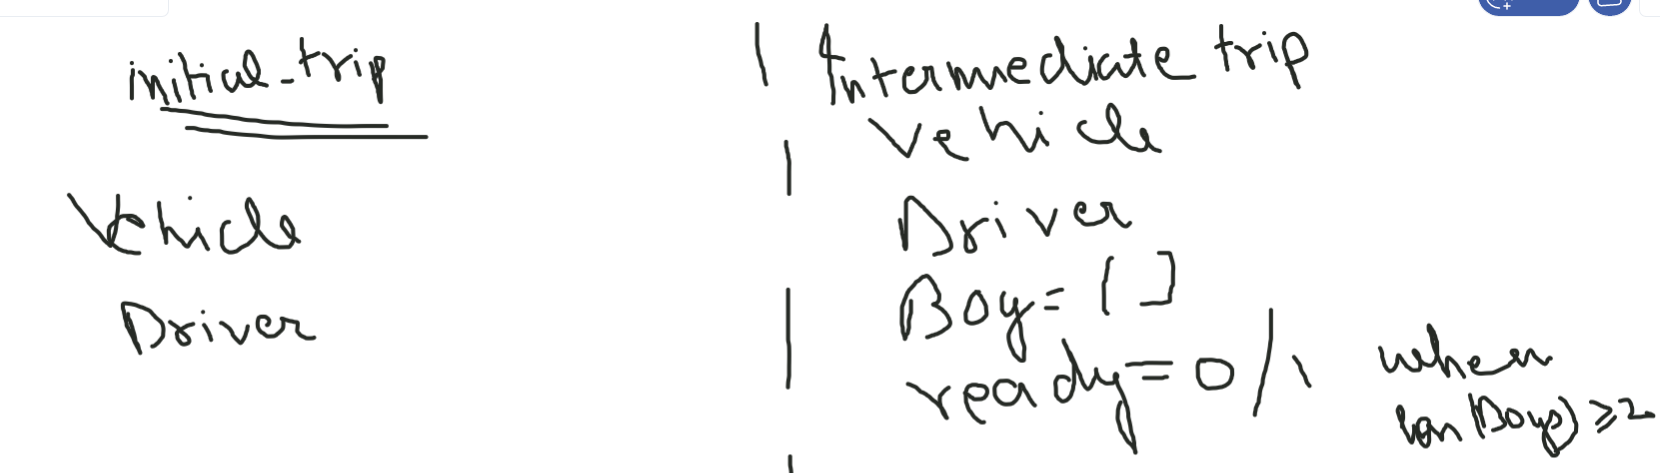 initial-trip
Vehicle
Driver
Intermediate trip
Vehicle
Driver
Boy = [ ]
ready = 0/1 when
len(Boys) ≥ 2